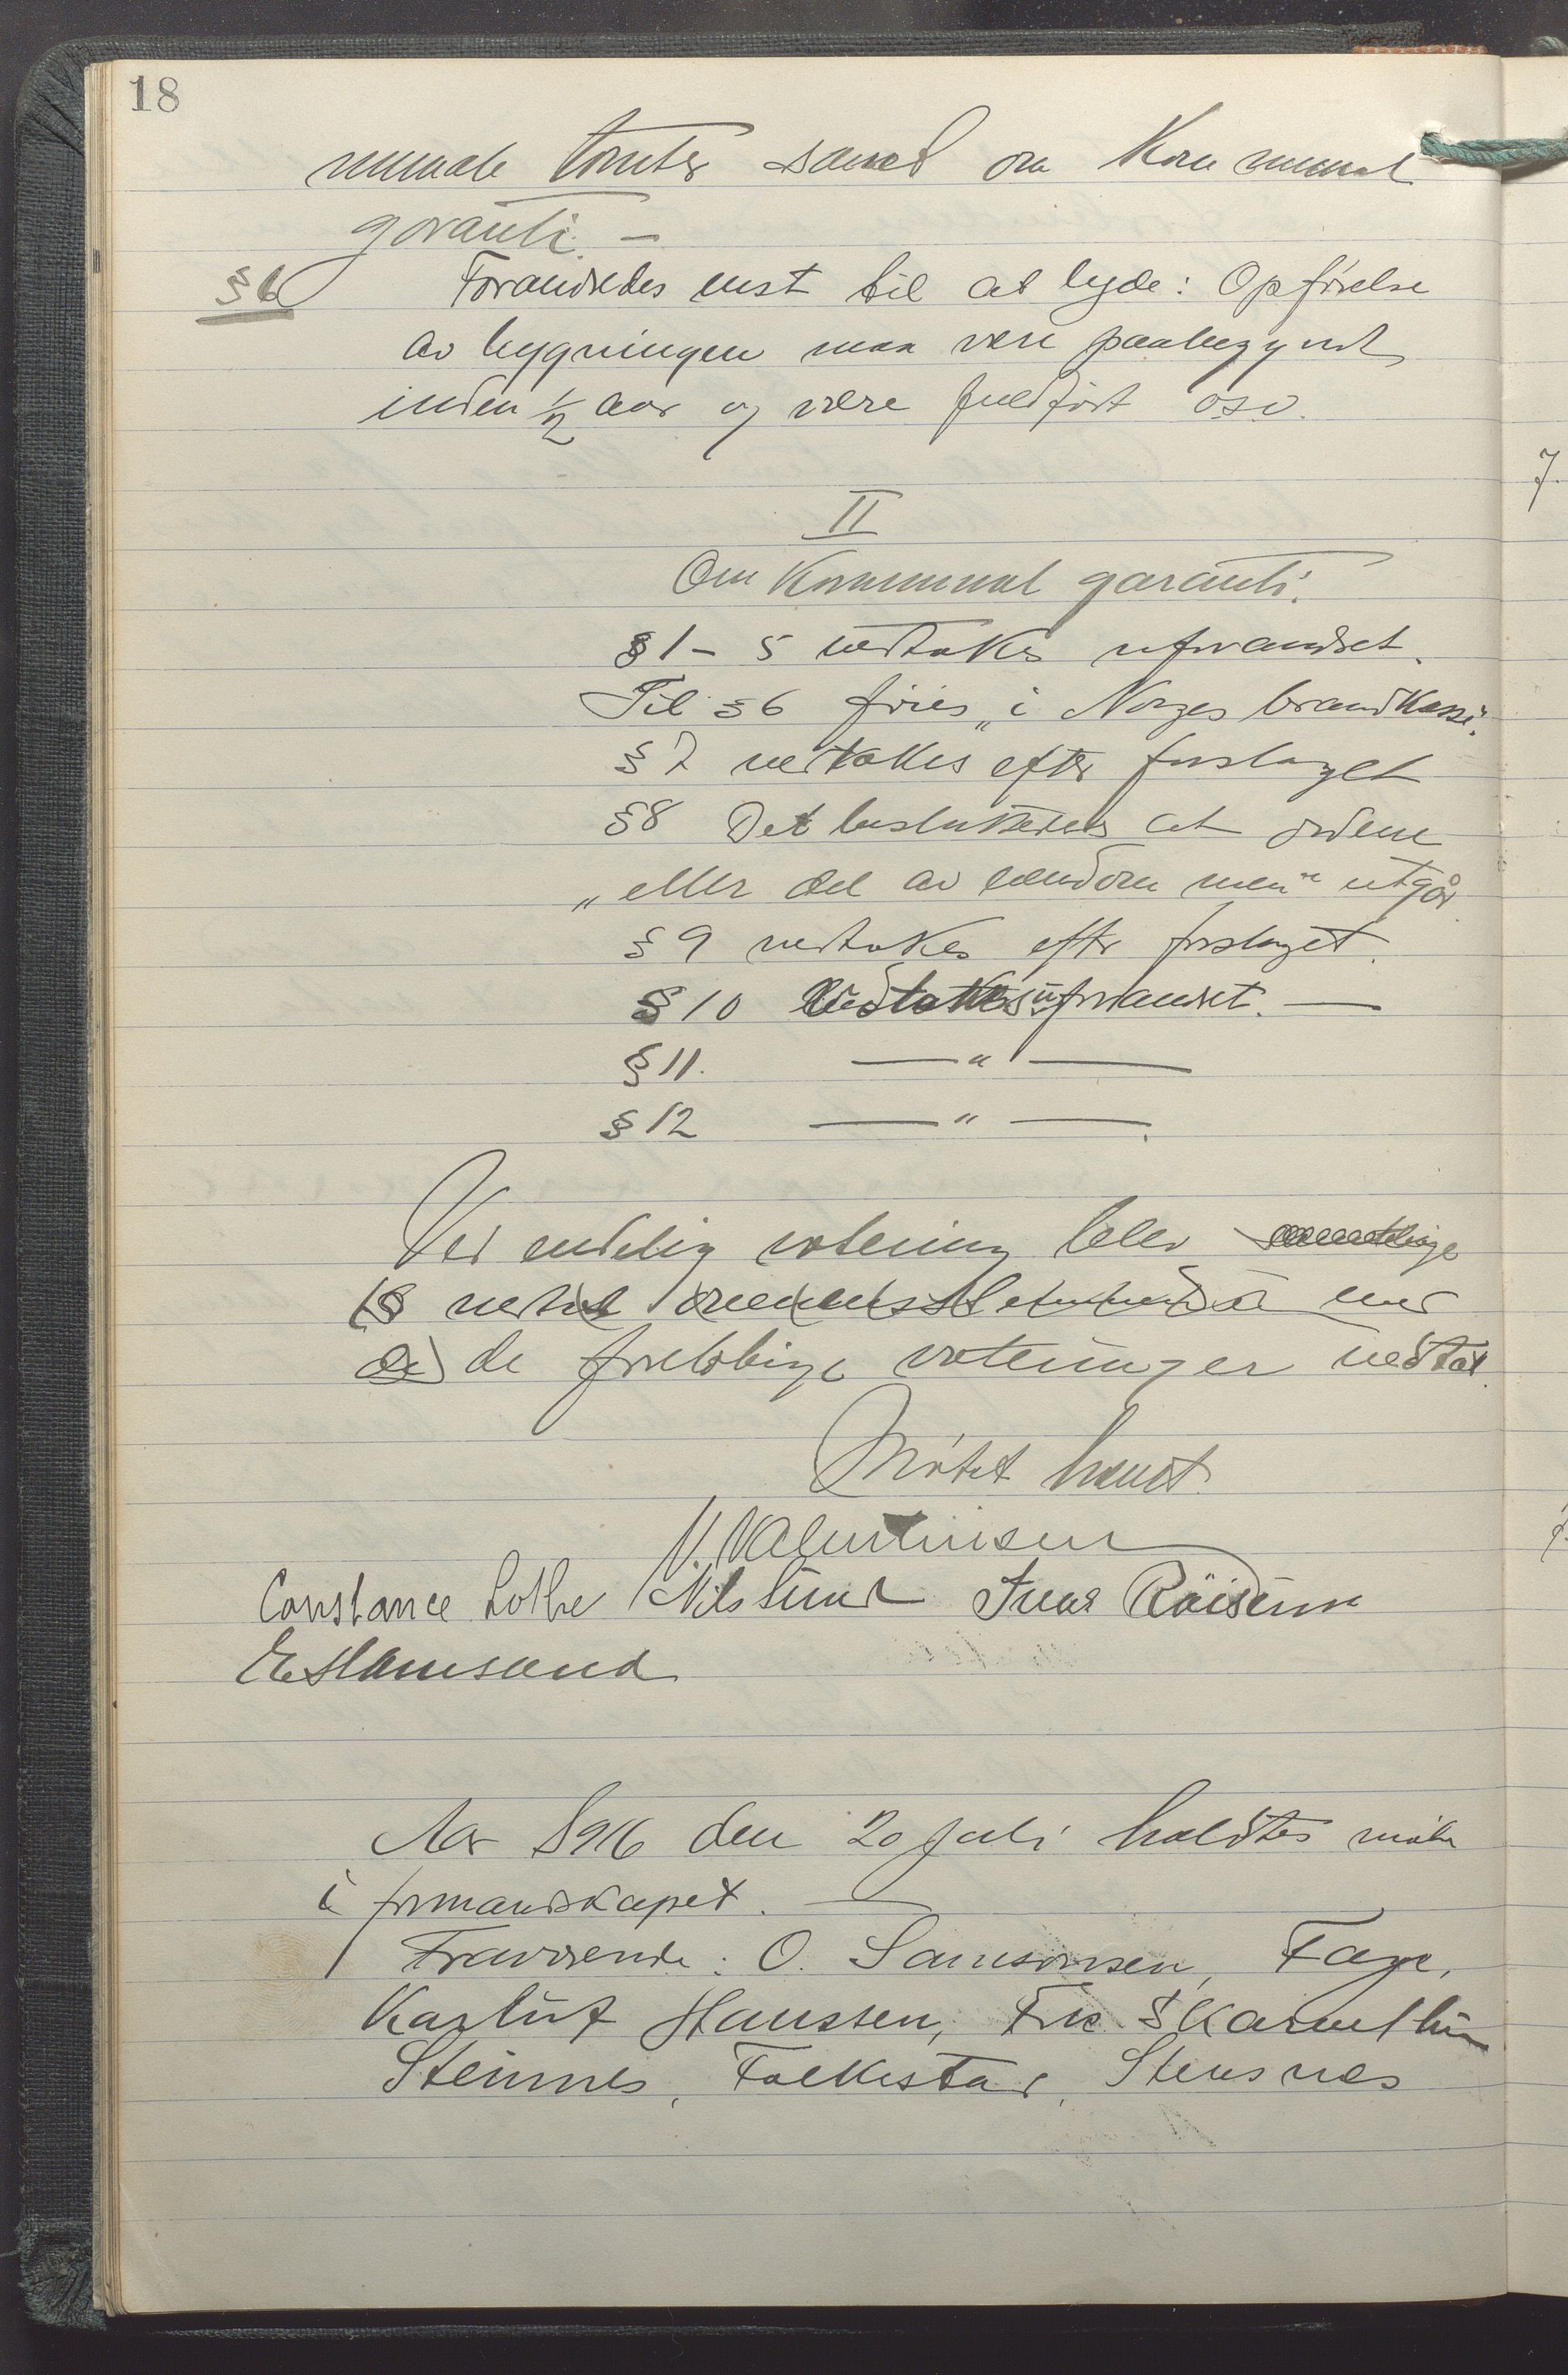 18
munale tomter samt om Kommunal
garanti. —
§ 6 Forandredes enst til at lyde: Opförelse
av bygningen maa være paabegyndt
inden 1/2 aar og være fuldfört osv.
II
Om Kommunal garanti.
§ 1 – 5 vedtakes uforandret.
Til § 6 föies „i Norges brandkasse".
§ 7 vedtakes efter forslaget
§ 8 Det besluttedes at ordene
„eller del av eiendommen" utgår
§ 9 vedtakes efter forslaget.
§ 10 Vedtakes uforandret. —
§ 11. — " —
§ 12 — " —.
Ved endelig votering blev
de forelöbige voteringer vedtat.
Mötet hævet.
N. Valentinsen
Constance Lothe Nils Sund Jens Röiseune
E. Hamsund
Aar 1916 den 20 juli holdtes möte
i formandskapet. —
Fraværende: O. Samsonsen, Faye,
Karluf Hanssen, Frk Skarvethun
Steinnes, Folkestad, Stensnæs
7.